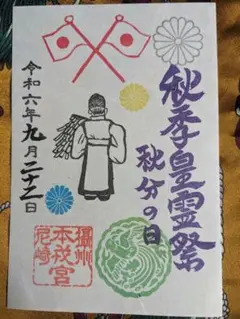 秋季皇霊祭
秋分の日
令和六年九月二十二日
摂州
本戎宮
尼崎